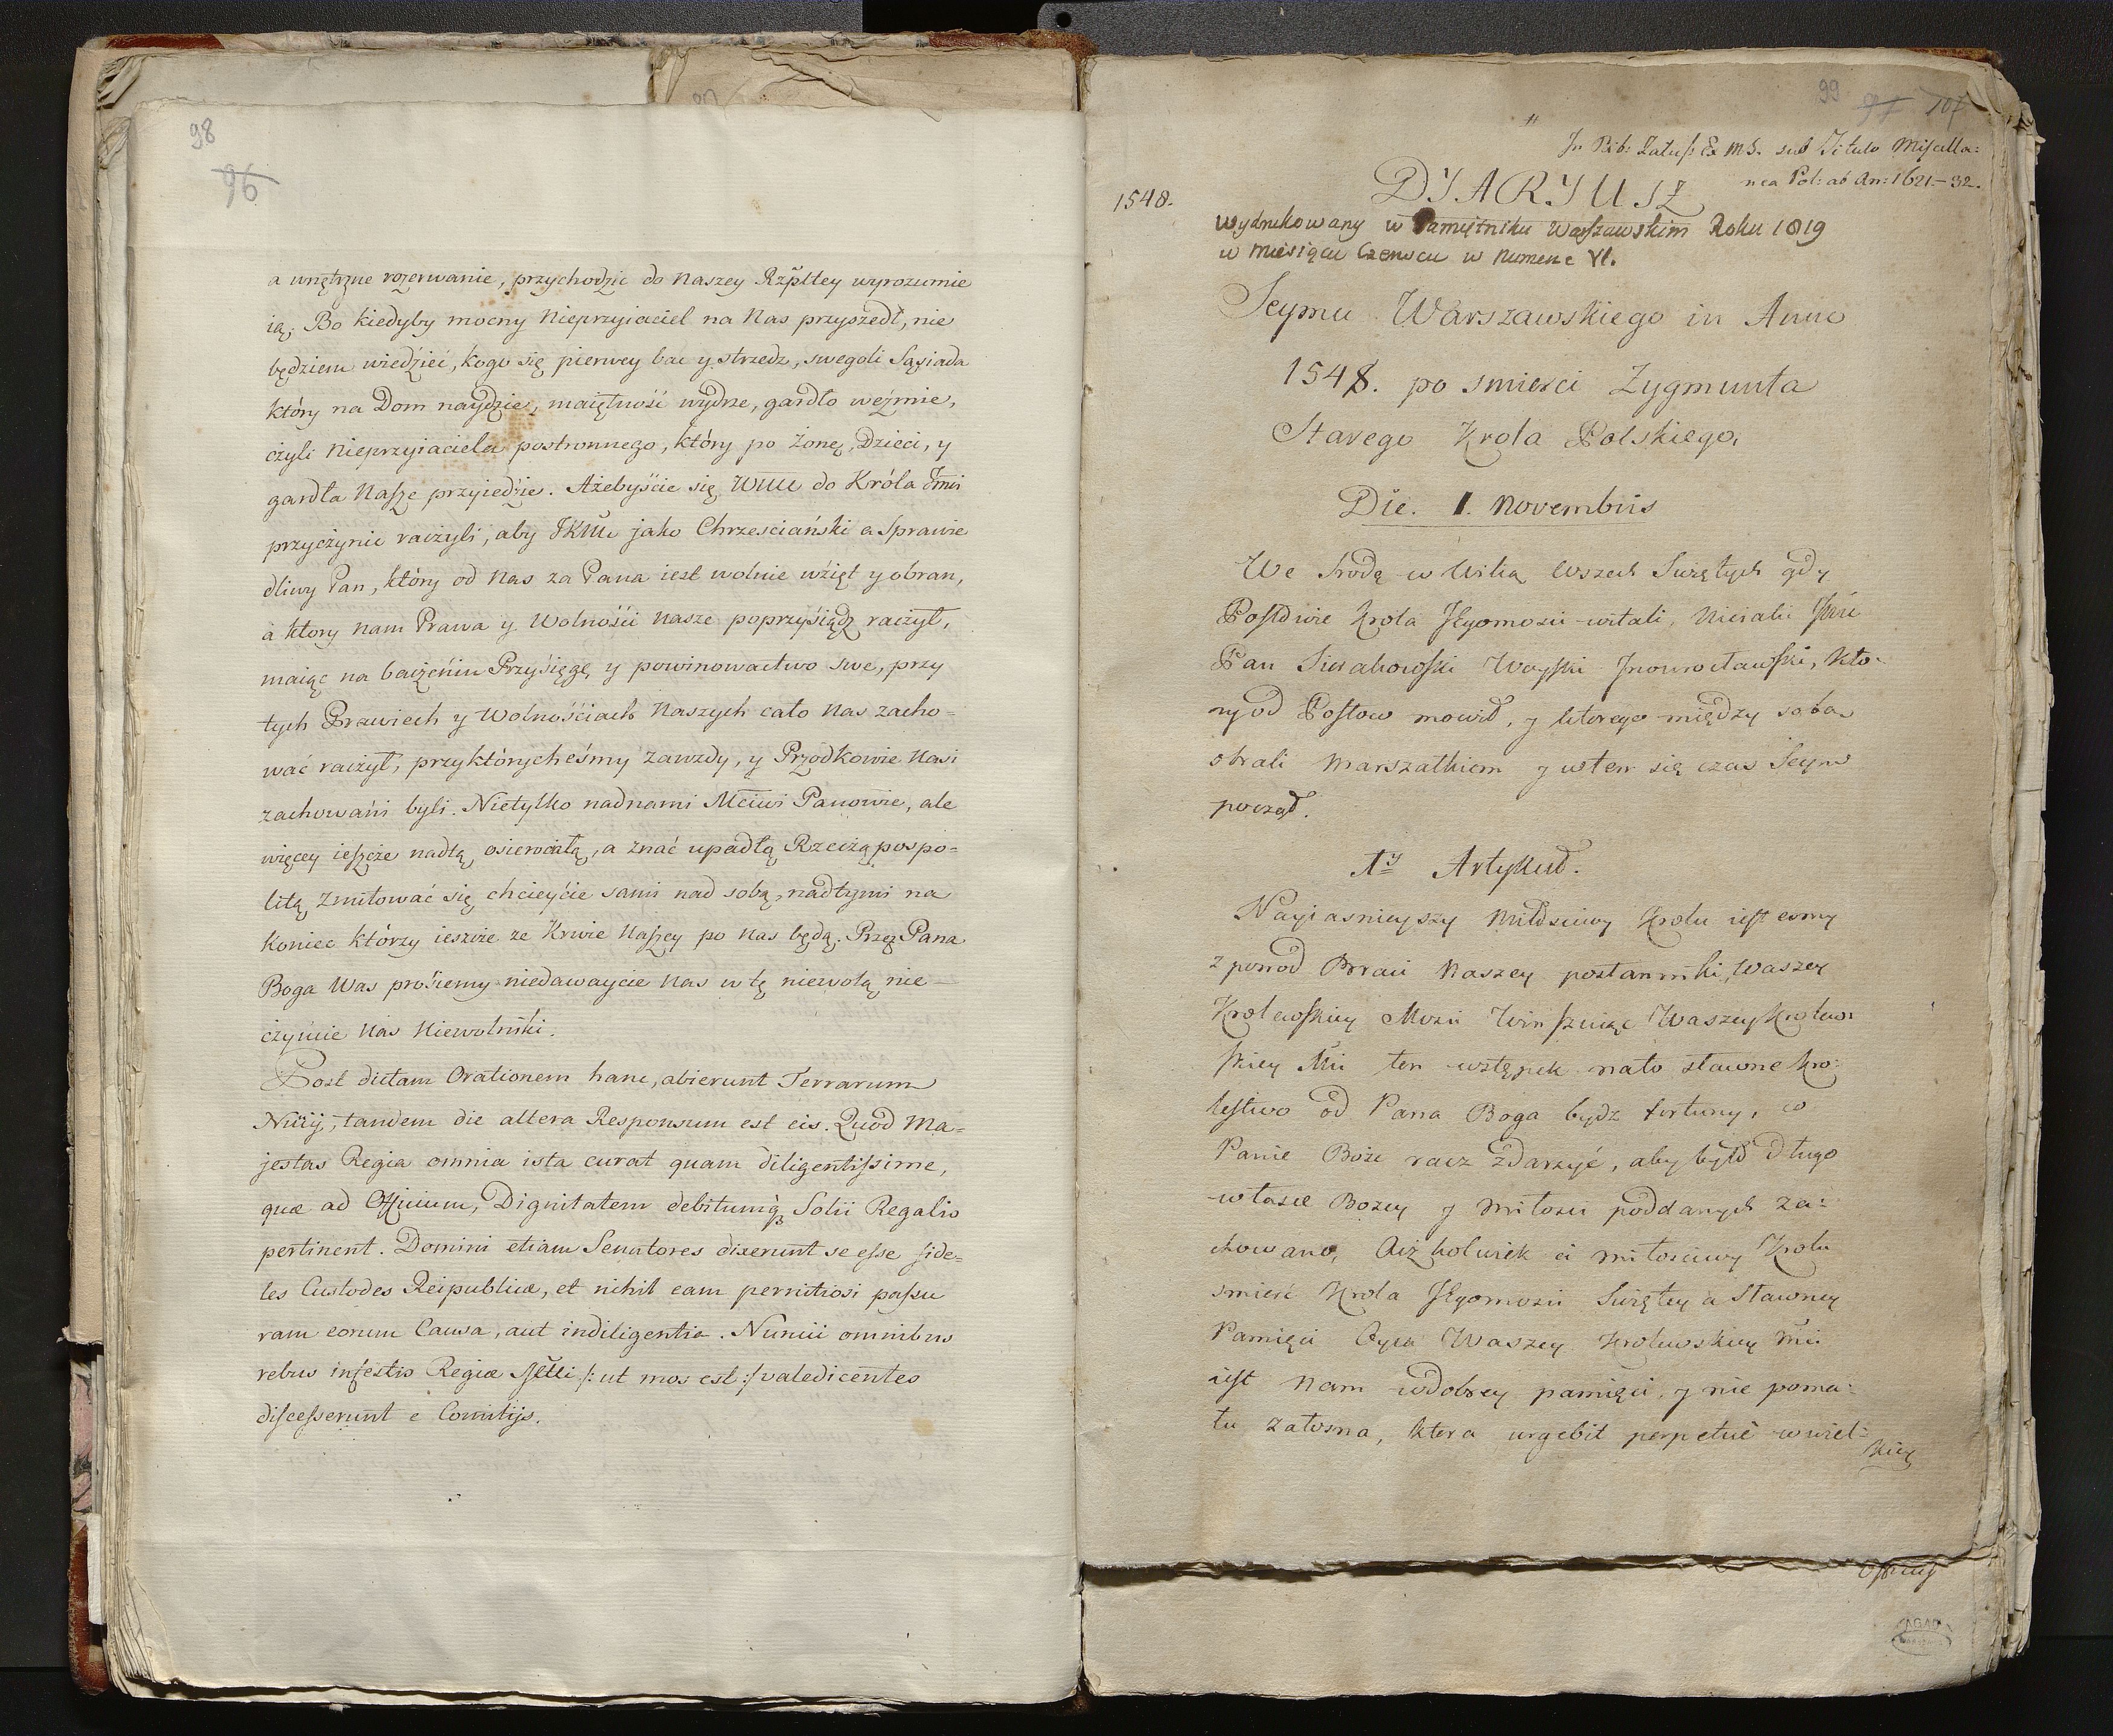 98
96
a wnętrzne rozerwanie, przychodzic do Naszey Rzpltey wyrozumie
ią. Bo kiedyby mocny Nieprzyiaciel na Nas przyszedł, nie
będziem wiedzieć, kogo się pierwey bac y strzedz, swegoli Sąsiada
który na Dom naydzie, maiętność wydrze, gardło weźmie,
czyli Nieprzyiaciela postronnego, który po żonę, Dzieci, y
gardła Nasze przyiedzie. Ażebyście się do Króla Jmci
przyczynic raczyli, aby jako Chrzesciański a Sprawie
dliwy Pan, który od Nas za Pana iest wolnie wzięt y obran,
a ktory nam Prawa y Wolności nasze poprzysiądz raczył,
maiąc na baczeniu Przysięgę y powinowactwo swe, przy
tych Prawiech y Wolnościach Naszych cało Nas zacho=
wać raczył, przyktórycheśmy zawzdy, y Przodkowie Nasi
zachowani byli. Nietylko nadnami Mciwi Panowie, ale
więcey ieszcze nadtą osierociałą, a znać upadłą Rzecząpospo=
litą zmiłować się chcieycie sami nad sobą, nadtymi na
koniec którzy ieszcze ze Krwie Naszey po Nas będą. Przez Pana
Boga Was prosiemy niedawaycie Nas w tę niewolą nie=
czyńcie Nas Niewolniki.
Post dictam Orationem hanc, abierunt Terrarum
Nuii, tandem die altera Responsum est eis. Quod Ma=
jestas Regia omnia ista curat quam diligentissime,
quæ ad Officium, Dignitatem debitumq Solii Regalis
pertinent. Domini etiam Senatores dixerunt se esse fide=
les Custodes Reipublicæ, et nihil eam pernitiosi passu
ram eorum Causa, aut indiligentia. Nuncii omnibus
rebus infectis Regiæ /: ut mos est :/ valedicentes
discesserunt e Comitijs.
99
97 107
In Bib: Załus: Ex MS. sub Titulo Miscella:
nea Pol: ab An: 1621-32.
1548.
DYARYUSZ
wydrukowany w Pamiętniku Warszawskim Roku 1819
w miesiącu Czerwcu w Numerze VI.
Seymu Warszawskiego in Anno
1548. po smierci Zygmunta
Starego Krola Polskiego.
Die. 1. Novembris
We Srodę w Wilią Wszech Swiętych gdy
Posłowie Krola Jegomosci witali, Miciali
Pan Sierakowski Woyski Inowrocławski, kto=
ry od Posłow mowił, y ktorego między sobą
obrali Marszałkiem y wten się czas Seym
począł.
1y Artykuł.
Nayiasnieyszy Miłosciwy Krolu iestesmy
z posrod Braci Naszey posłanniki Waszey
Krolewskiey Mosci Winszuiąc Waszey Krolew=
skiey Mci ten wstępek nato sławne Kro=
lestwo od Pana Boga bydz fortuny, co
Panie Boże racz zdarzyć, aby było długo
własce Bozey y miłosci poddanych za=
chowano, Aczkolwiek ci miłosciwy Krolu
smierć Krola Jegomosci Swiętey a Sławney
Pamięci Oyca Waszey Krolewskiey Mci
iest Nam wdobrey pamięci, y nie poma=
łu załosna, ktora urgebit perpetuè wwiel=
kiey
AGAD